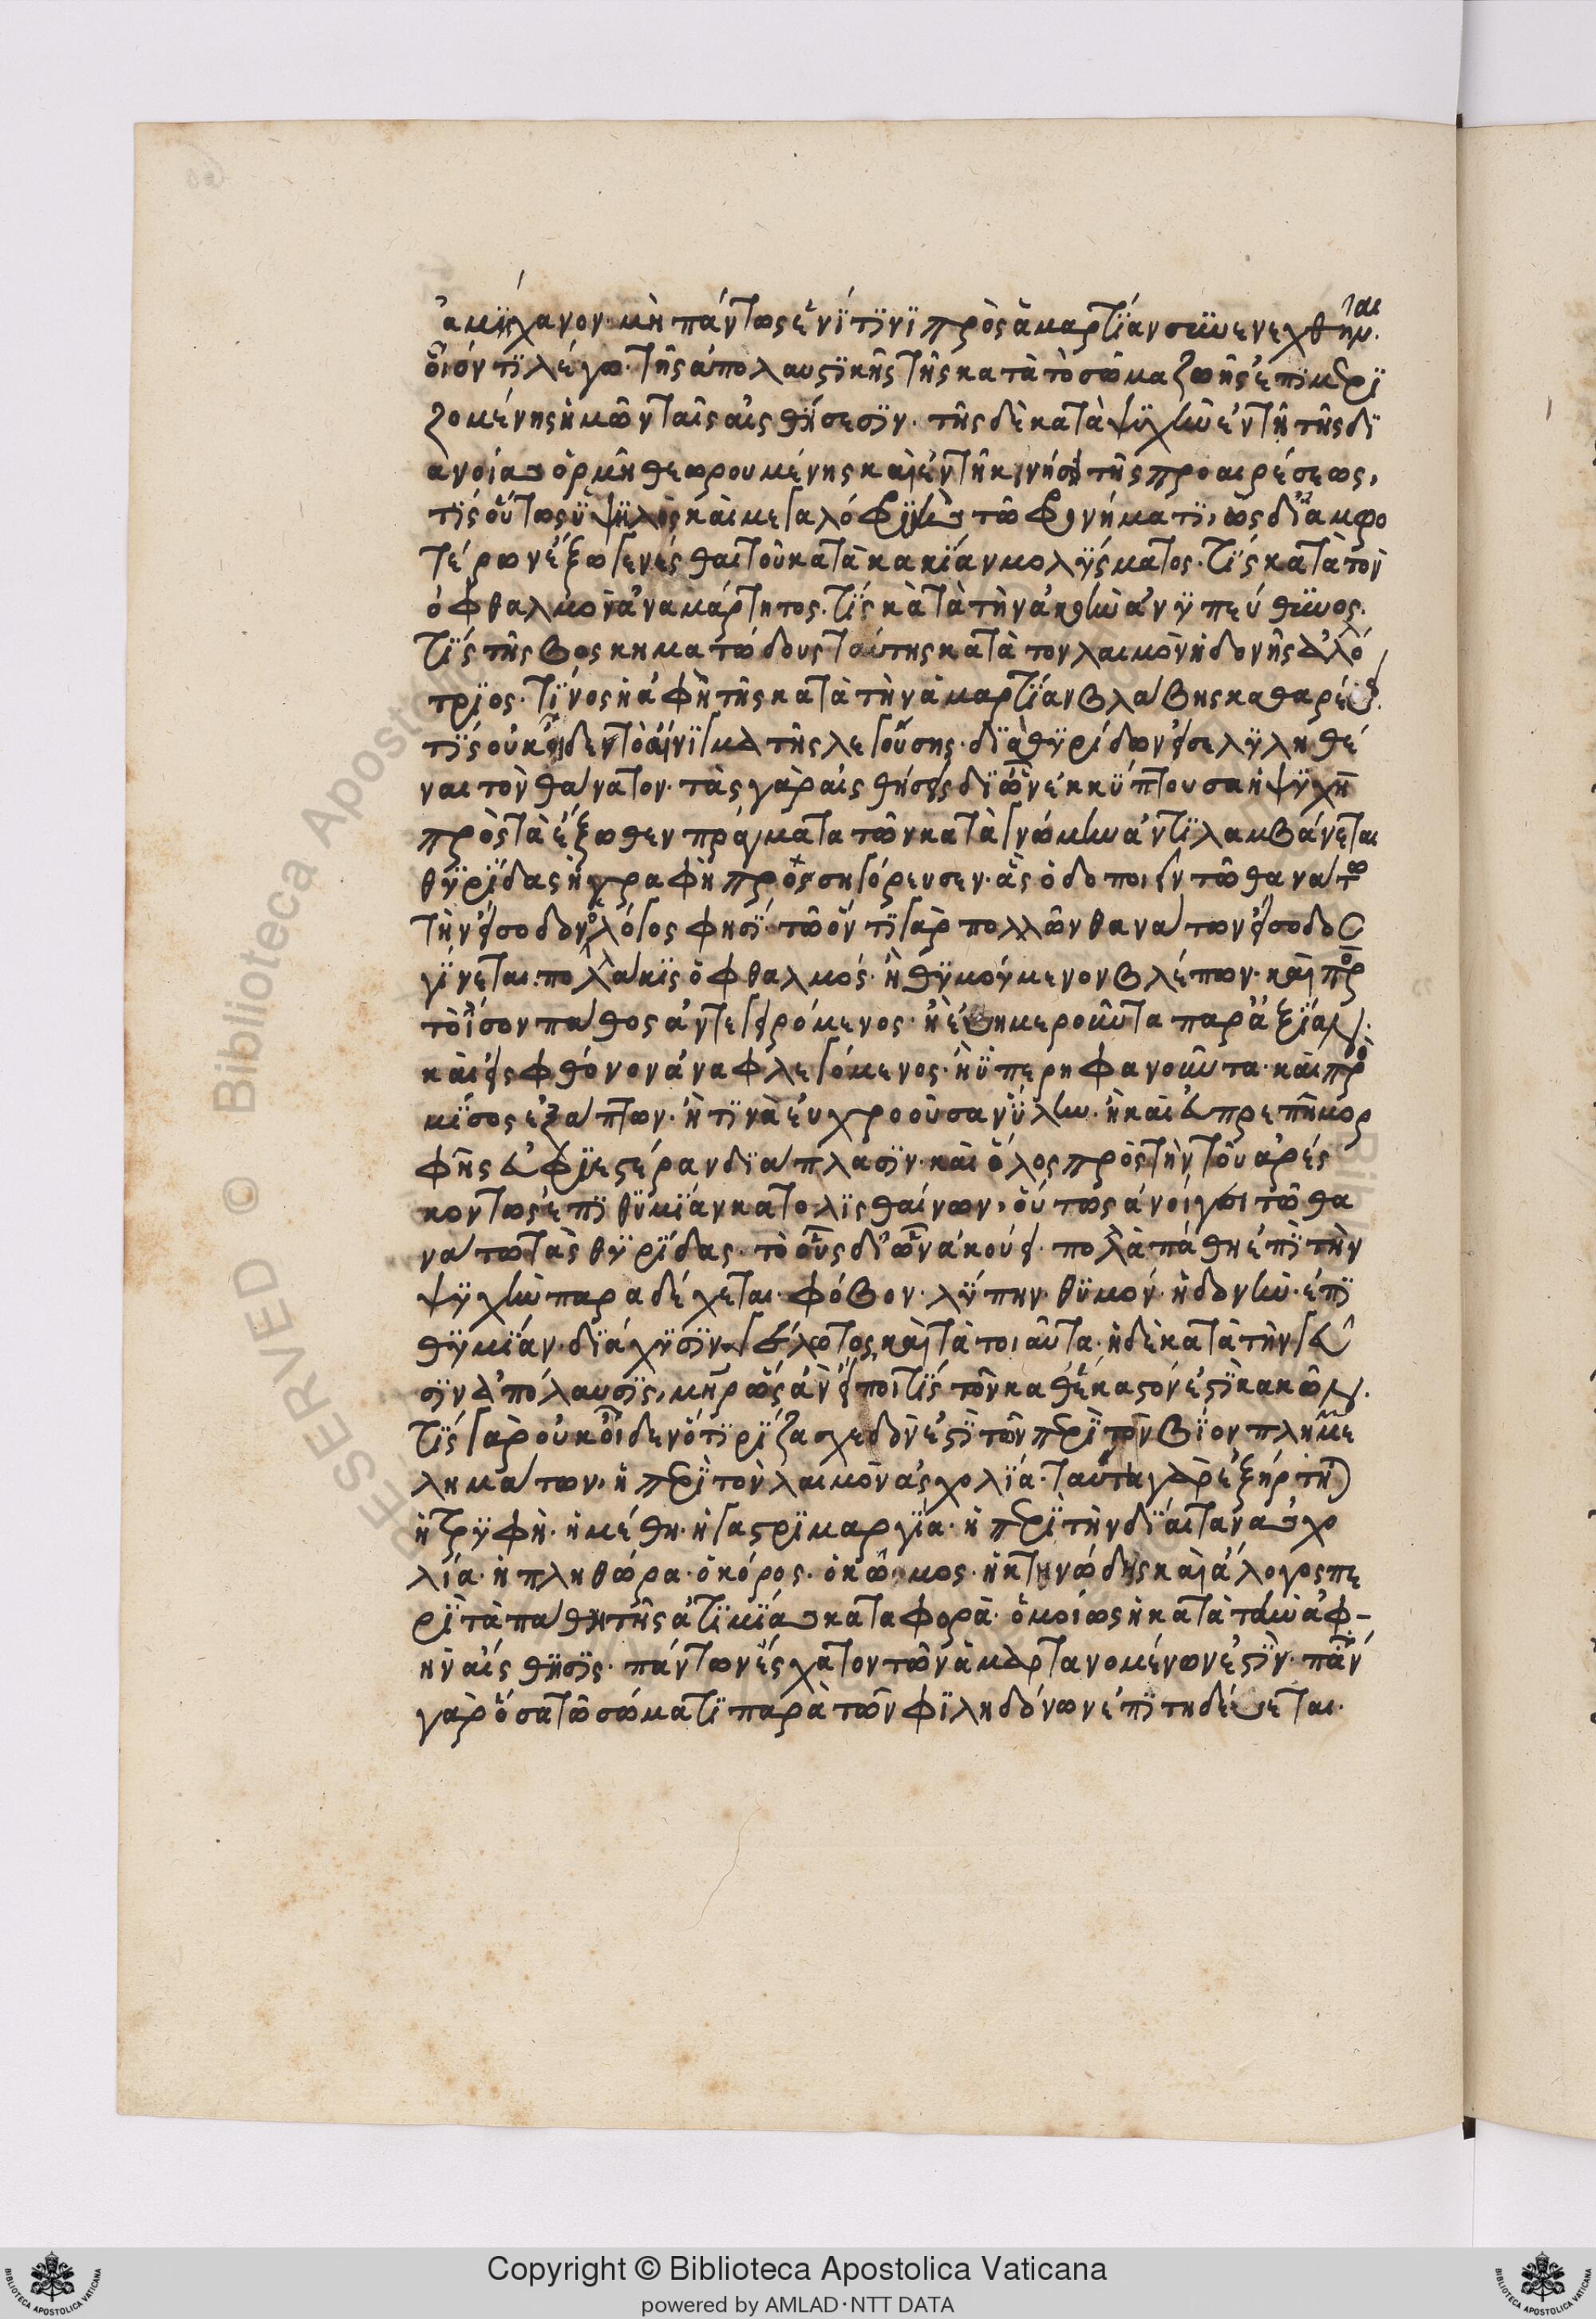 ἀμήχανον· μὴ πάντως ἑνί τινι πρὸς ἁμαρτίαν συνενεχθῆναι.
οἷόν τι λέγω· τῆς ἀπολαυστικῆς τῆς κατὰ τὸ σῶμα ζωῆς ἐπιμερι
ζομένης ἡμῶν ταῖς αἰσθήσεσιν· τῆς δὲ κατὰ ψυχὴν ἐν τῇ τῆς δι
ανοίας ὁρμῇ θεωρουμένης καὶ ἐν τῇ κινήσει τῆς προαιρέσεως,
τίς οὕτως ὑψηλὸς καὶ μεγαλόφυὴς τῷ φρονήματι, ὡς δι' ἀμφο
τέρων ἔξω γενέσθαι τοῦ κατὰ κακίαν μολύσματος. τίς κατὰ τὸν
ὀφθαλμὸν ἀναμάρτητος. τίς κατὰ τὴν ἀκοὴν ἀνυπεύθυνος.
τίς τῆς βοσκηματώδους ταύτης κατὰ τὸν λαιμὸν ἡδονῆς ἀλλό
τριος. τίνος ἡ ἁφὴ τῆς κατὰ τὴν ἁμαρτίαν βλάβης καθαρεύει.
τίς οὐκ οἶδεν τὸ αἴνιγμα τῆς λεγούσης· διὰ θυρίδων εἰσεληλυθέ
ναι τὸν θάνατον· τὰς γὰρ αἰσθήσεις δι' ὧν ἐκκύπτουσα ἡ ψυχὴ
πρὸς τὰ ἔξωθεν πράγματα τῶν κατὰ γνώμην ἀντιλαμβάνεται
θυρίδας ἡ γραφὴ προσηγόρευσεν· ἃς ὁδοποιεῖν τῷ θανάτῳ
τὴν εἴσοδον ὁ λόγος φησί· τῷ ὄντι γὰρ πολλῶν θανάτων εἴσοδος
γίνεται πολλάκις ὀφθαλμός· ἢ θυμούμενον βλέπων· καὶ πρὸς
τὸ ἴσον πάθος ἀντεγειρόμενος· ἢ εὐημεροῦντα παρ' ἀξίαν.
καὶ εἰς φθόνον ἀναφλεγόμενος· ἢ ὑπερηφανοῦντα· καὶ πρὸς
μῖσος ἐξάπτων· ἢ τινὰ εὐχροοῦσαν ὕλην· ἢ καὶ εὐπρεπῆ μορ
φῆς εὐφυεστέραν διάπλασιν· καὶ ὅλος πρὸς τὴν τοῦ ἀρέσ
κοντος ἐπιθυμίαν κατολισθαίνων, οὕτως ἀνοίγει τῷ θα
νάτῳ τὰς θυρίδας. τὸ οὖς δι' ὧν ἀκούει· πολλὰ πάθη ἐπὶ τὴν
ψυχὴν παραδέχεται· φόβον· λύπην· θυμόν· ἡδονὴν· ἐπι
θυμίαν· διάχυσιν γέλωτος καὶ τὰ τοιαῦτα· ἡ δὲ κατὰ τὴν γεῦ
σιν ἀπόλαυσις, μήτηρ ὡς ἂν εἴποι τίς τῶν καθέκαστόν ἐστι κακῶν.
τίς γὰρ οὐκ οἶδεν ὅτι ῥίζα σχεδὸν ἐστὶ τῶν περὶ τὸν βίον πλημμε
λημάτων, ἡ περὶ τὸν λαιμὸν ἀσχολία· ταύτης γὰρ ἐξήρτηται
ἡ τρυφὴ· ἡ μέθη· ἡ γαστριμαργία· ἡ περὶ τὴν δίαιταν ἀσχο
λία· ἡ πληθώρα· ὁ κόρος· ὁ κῶμος· ἡ κτηνώδης καὶ ἄλογος πε
ρὶ τὰ πάθη τῆς ἀτιμίας καταφορὰ· ὁμοίως ἡ κατὰ τὴν ἁφ-
ὴν αἴσθησις· πάντων ἔσχατον τῶν ἁμαρτανομένων ἐστὶν· πάντα
γὰρ ὅσα τῷ σώματι παρὰ τῶν φιληδόνων ἐπιτηδεύεται.
Copyright © Biblioteca Apostolica Vaticana
powered by AMLAD·NTT DATA